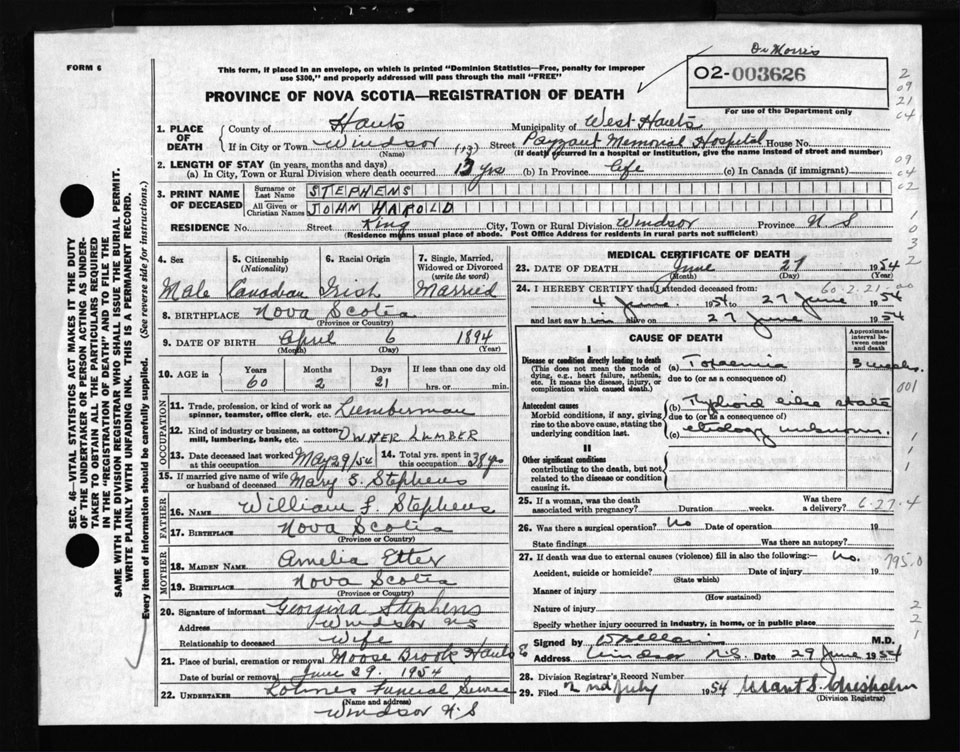 Dr Morris
FORM 6
This form, if placed in an envelope, on which is printed "Dominion Statistics—Free, penalty for improper
use $300," and properly addressed will pass through the mail "FREE"
02-003626
PROVINCE OF NOVA SCOTIA—REGISTRATION OF DEATH
For use of the Department only
1. PLACE OF DEATH { County of Hants Municipality of West Hants
If in City or Town Windsor (Name) (13) Street Payzant Memorial Hospital House No.
(If death occurred in a hospital or institution, give the name instead of street and number)
2. LENGTH OF STAY (in years, months and days)
(a) In City, Town or Rural Division where death occurred 13 yrs (b) In Province life (c) In Canada (if immigrant)
3. PRINT NAME OF DECEASED { Surname or Last Name STEPHENS
All Given or Christian Names JOHN HAROLD
RESIDENCE No. Street King City, Town or Rural Division Windsor Province N S
(Residence means usual place of abode. Post Office Address for residents in rural parts not sufficient)
4. Sex Male
5. Citizenship (Nationality) Canadian
6. Racial Origin Irish
7. Single, Married, Widowed or Divorced (write the word) Married
8. BIRTHPLACE Nova Scotia
(Province or Country)
9. DATE OF BIRTH April 6 1894
(Month) (Day) (Year)
10. AGE in Years Months Days If less than one day old
60 2 21 hrs. or min.
OCCUPATION
11. Trade, profession, or kind of work as spinner, teamster, office clerk, etc. Lumberman
12. Kind of industry or business, as cotton-mill, lumbering, bank, etc. OWNER LUMBER
13. Date deceased last worked at this occupation May 29/54
14. Total yrs. spent in this occupation 38 yrs
15. If married give name of wife or husband of deceased Mary S. Stephens
FATHER
16. NAME William F. Stephens
17. BIRTHPLACE Nova Scotia
(Province or Country)
MOTHER
18. MAIDEN NAME Amelia Etter
19. BIRTHPLACE Nova Scotia
(Province or Country)
20. Signature of informant Georgina Stephens
Address Windsor NS
Relationship to deceased Wife
21. Place of burial, cremation or removal Moose Brook Hants
Date of burial or removal June 29. 1954
22. UNDERTAKER Funeral Service
(Name and address)
Windsor N.S
MEDICAL CERTIFICATE OF DEATH
23. DATE OF DEATH June 27 1954
(Month) (Day)
24. I HEREBY CERTIFY that I attended deceased from: 60-2-21-00
4 June 1954 to 27 June 1954
and last saw him alive on 27 June 1954
CAUSE OF DEATH
Approximate interval between onset and death
I
Disease or condition directly leading to death
(This does not mean the mode of dying, e.g., heart failure, asthenia, etc. It means the disease, injury, or complication which caused death.)
(a) Toxaemia 3 weeks
due to (or as a consequence of)
001
Antecedent causes
Morbid conditions, if any, giving rise to the above cause, stating the underlying condition last.
(b) Typhoid like state
due to (or as a consequence of)
(c) etiology unknown.
II
Other significant conditions
contributing to the death, but not related to the disease or condition causing it.
25. If a woman, was the death associated with pregnancy? Duration weeks. Was there a delivery? 6-27-4
26. Was there a surgical operation? No Date of operation 19
State findings Was there an autopsy?
27. If death was due to external causes (violence) fill in also the following:— No. 795.0
Accident, suicide or homicide? Date of injury 19
(State which)
Manner of injury
(How sustained)
Nature of injury
Specify whether injury occurred in industry, in home, or in public place
Signed by M.D.
Address Windsor N.S. Date 29 June 1954
28. Division Registrar's Record Number
29. Filed 2nd July 1954 Grant S. Chisholm
(Division Registrar)
SEC. 46—VITAL STATISTICS ACT MAKES IT THE DUTY
OF THE UNDERTAKER OR PERSON ACTING AS UNDER-
TAKER TO OBTAIN ALL THE PARTICULARS REQUIRED
IN THE "REGISTRATION OF DEATH" AND TO FILE THE
SAME WITH THE DIVISION REGISTRAR WHO SHALL ISSUE THE BURIAL PERMIT.
WRITE PLAINLY WITH UNFADING INK. THIS IS A PERMANENT RECORD.
Every item of information should be carefully supplied. (See reverse side for instructions.)